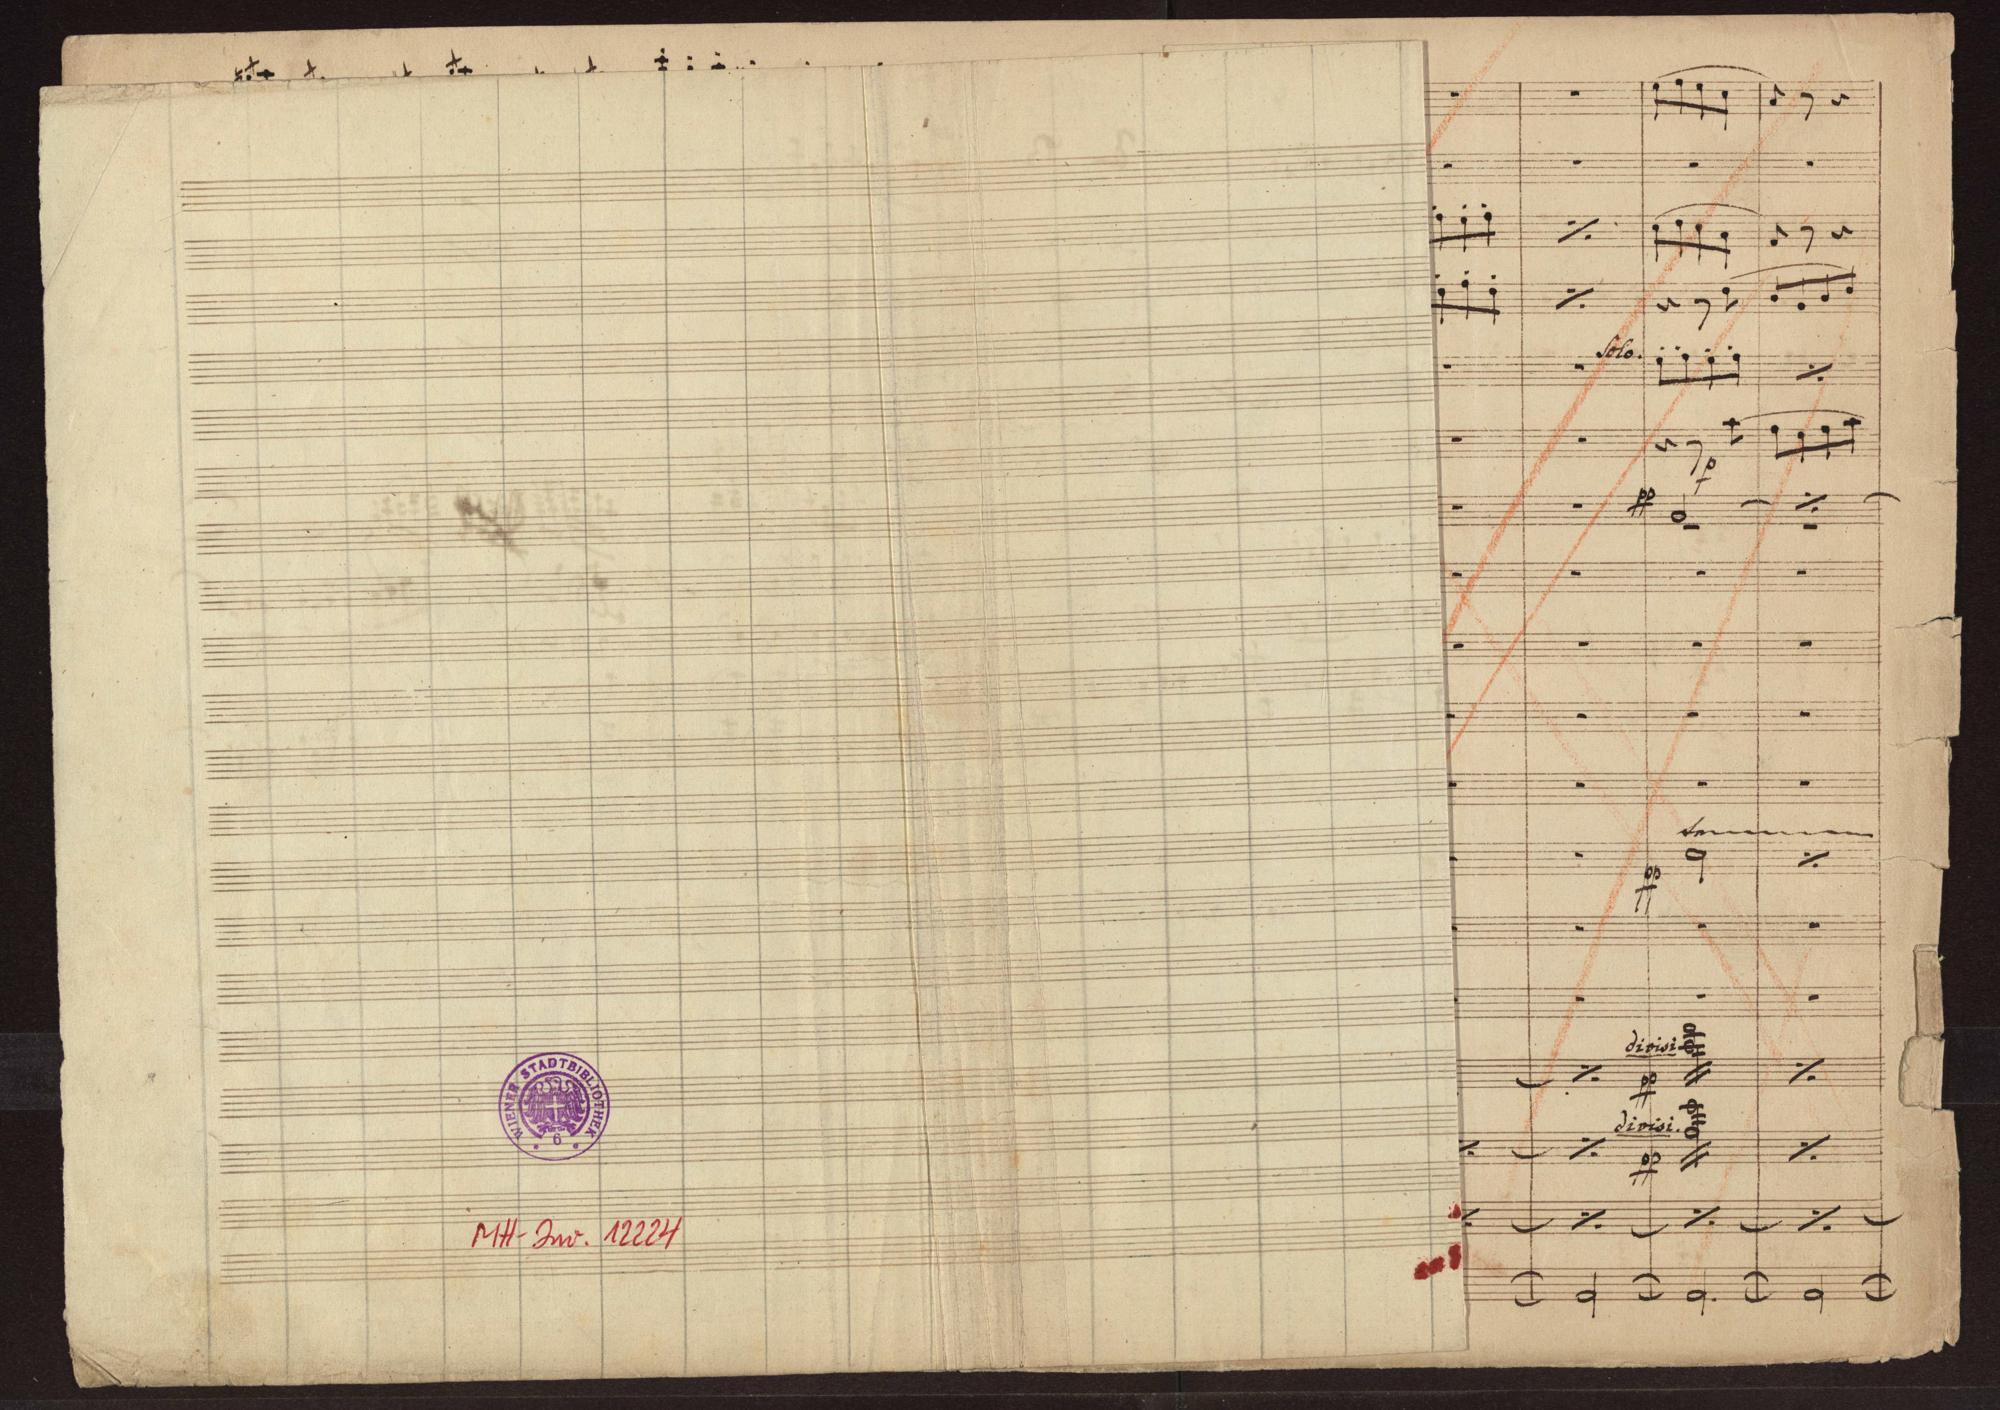 Solo.
p
pp
pp
divisi
pp
divisi.
pp
WIENER STADTBIBLIOTHEK
6
MH-Inv. 12224